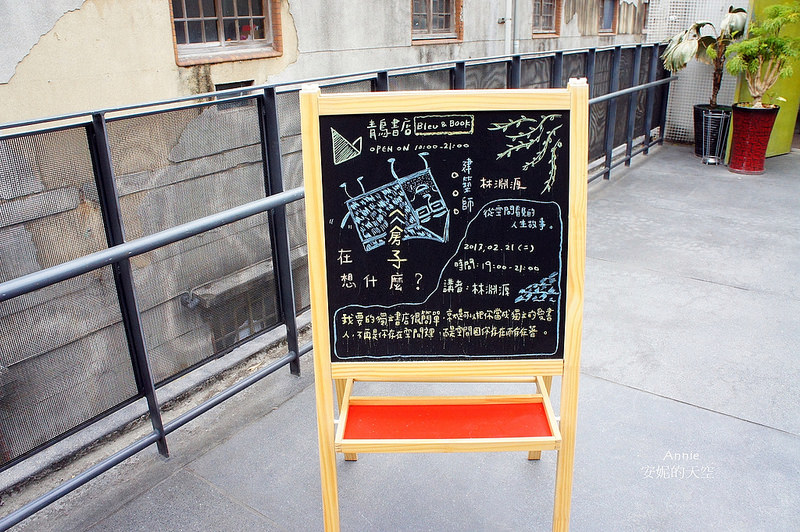 青鳥書店 Bleu & Book
OPEN ON 10:00-21:00
建築師
林淵源
倉子
在想什麼？
從空間看見的
人生故事。
2017.02.21 (二)
時間：19:00-21:00
講者：林淵源
我要的獨立書店很簡單，就是可以把你當成獨立的愛書
人，不再是你存在空間裡，而是空間因你存在而存在著。
Annie
安妮的天空